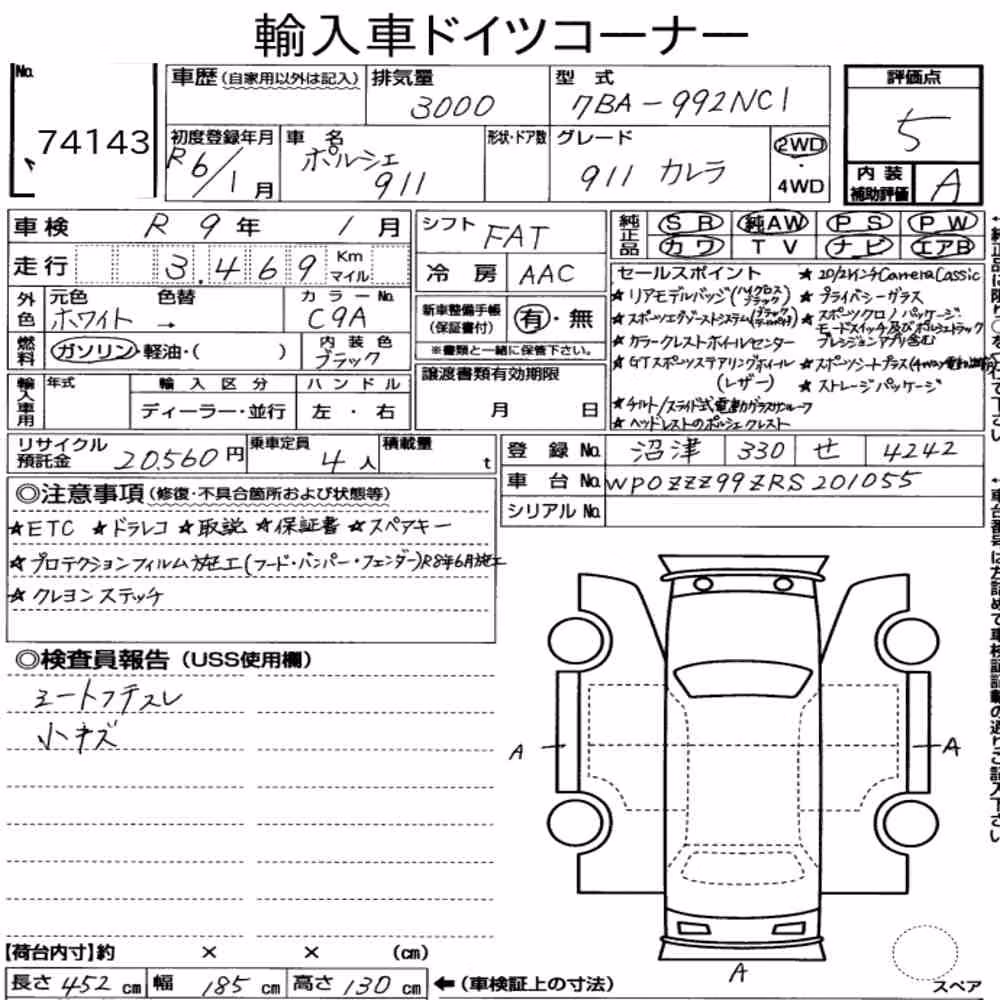 輸入車ドイツコーナー
No. 74143
車歴(自家用以外は記入)
排気量 3000
型式 7BA-992NC1
評価点 5
初度登録年月 R6/1月
車名 ポルシェ 911
形状・ドア数
グレード 911 カレラ
2WD・4WD
内装補助評価 A
車検 R 9年 1月
走行 3.469 Km マイル
シフト FAT
冷房 AAC
純正品 SR 純AW PS PW
カワ TV ナビ エアB
外色 元色 ホワイト 色替 → カラーNo. C9A
燃料 ガソリン・軽油・( ) 内装色 ブラック
新車整備手帳(保証書付) 有・無
※書類と一緒に保管下さい。
譲渡書類有効期限 月 日
セールスポイント
★リアモデルバッジ(ハイグロスブラック)
★スポーツエグゾーストシステム(ブラックテールパイプ)
★カラークレストホイールセンター
★GTスポーツステアリングホイール(レザー)
★チルト/スライド式電動グラスサンルーフ
★ヘッドレストのポルシェクレスト
★20/21インチCarreraClassic
★プライバシーガラス
★スポーツクロノパッケージ モードスイッチ及びポルシェトラックプレシジョンアプリ含む
★スポーツシートプラス(4way電動
★ストレージパッケージ
輸入車用 年式 輸入区分 ディーラー・並行 ハンドル 左・右
リサイクル預託金 20.560円 乗車定員 4人 積載量 t
登録No. 沼津 330 せ 4242
車台No. WP0ZZZ99ZRS201055
シリアルNo.
◎注意事項(修復・不具合箇所および状態等)
★ETC ★ドラレコ ★取説 ★保証書 ★スペアキー
★プロテクションフィルム施工(フード・バンパー・フェンダー)R8年6月施工
★クレヨンステッチ
◎検査員報告(USS使用欄)
シートフチスレ
小キズ
A
A
A
【荷台内寸】約 × × (cm)
長さ 452 cm 幅 185 cm 高さ 130 cm ←(車検証上の寸法)
スペア